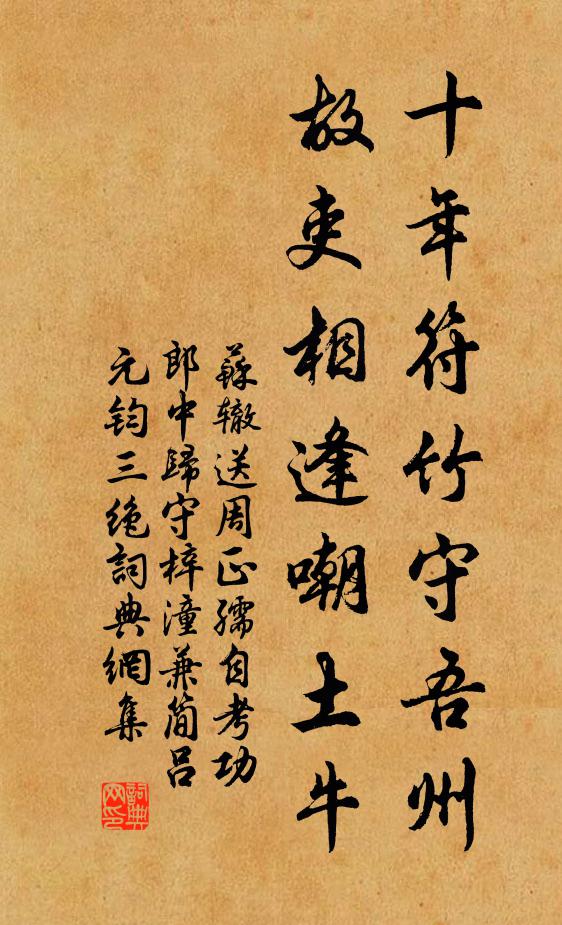 十年符竹守吾州
故吏相逢嘲土牛
蘇辙送周正孺自考功
郎中歸守梓潼兼简呂
元钧三绝詞典網集
詞典网印